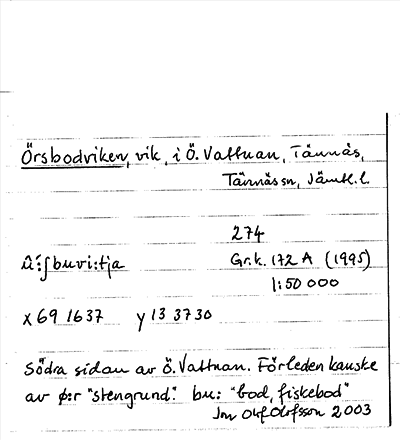 Örsbodviken, vik, i Ö. Vattnan, Tännäs,
Tännäs sn, Jämtl. l.
274
û:ʃbuvi:tja Gr.k. 172 A (1995)
1:50 000
x 69 1637 y 13 3730
Södra sidan av Ö. Vattnan. Förleden kanske
av ør "stengrund". bu: "bod, fiskebod"
Olof Olofsson 2003